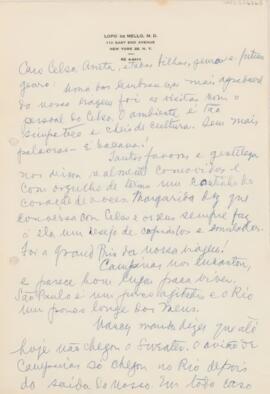 LOPO DE MELLO, M.D.
110 EAST END AVENUE
NEW YORK 28, N. Y.
Caro Celso, Aneta, e tres filhas, genros e futuro
genro: Uma das lembranças mais agradavel
da nossa viagem foi as visitas com o
pessoal do Celso. O ambiente é tão
simpatico e cheio de cultura. Sem mais
palavras — é bacana!
Tantos favores e gentilezas
nos deixou realmente comovidos e
com orgulho de termos um cantinho do
coração de vossos. Margarida diz que
conversa com Celso e os seus sempre faz
a ela um desejo de
Foi a grand Prix da nossa viagem!
Campinas nos encantou,
e parece bom lugar para viver.
São Paulo é um pouco agitado e o Rio
um pouco longe dos meus.
Narcy manda dizer que até
hoje não chegou o Sweater. O avião de
Campinas só chegou no Rio depois
da saida do nosso. Em todo caso